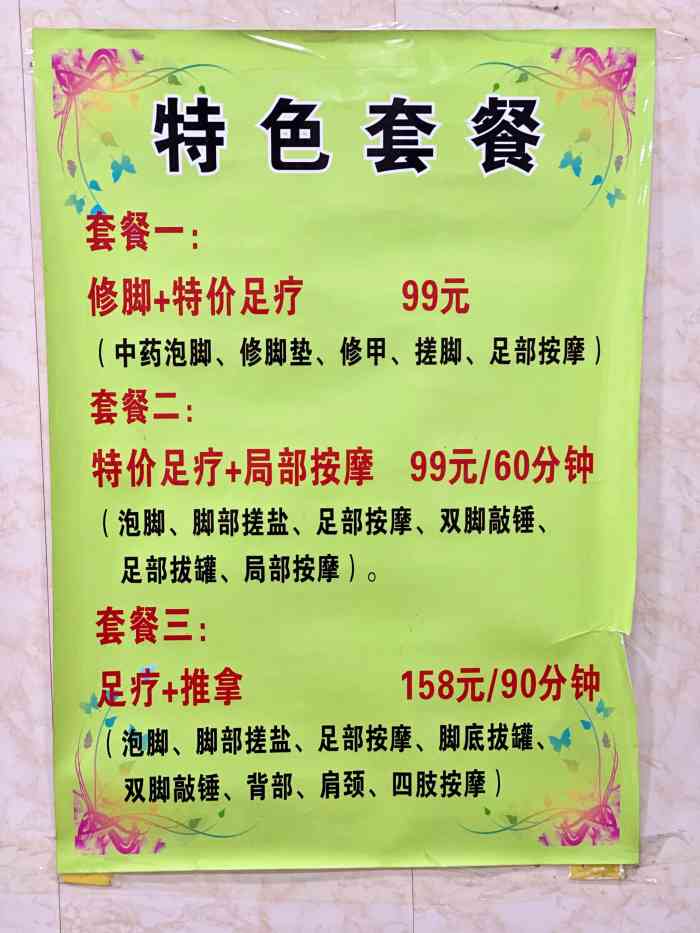 特色套餐
套餐一：
修脚+特价足疗 99元
（中药泡脚、修脚垫、修甲、搓脚、足部按摩）
套餐二：
特价足疗+局部按摩 99元/60分钟
（泡脚、脚部搓盐、足部按摩、双脚敲锤、
足部拔罐、局部按摩）。
套餐三：
足疗+推拿 158元/90分钟
（泡脚、脚部搓盐、足部按摩、脚底拔罐、
双脚敲锤、背部、肩颈、四肢按摩）